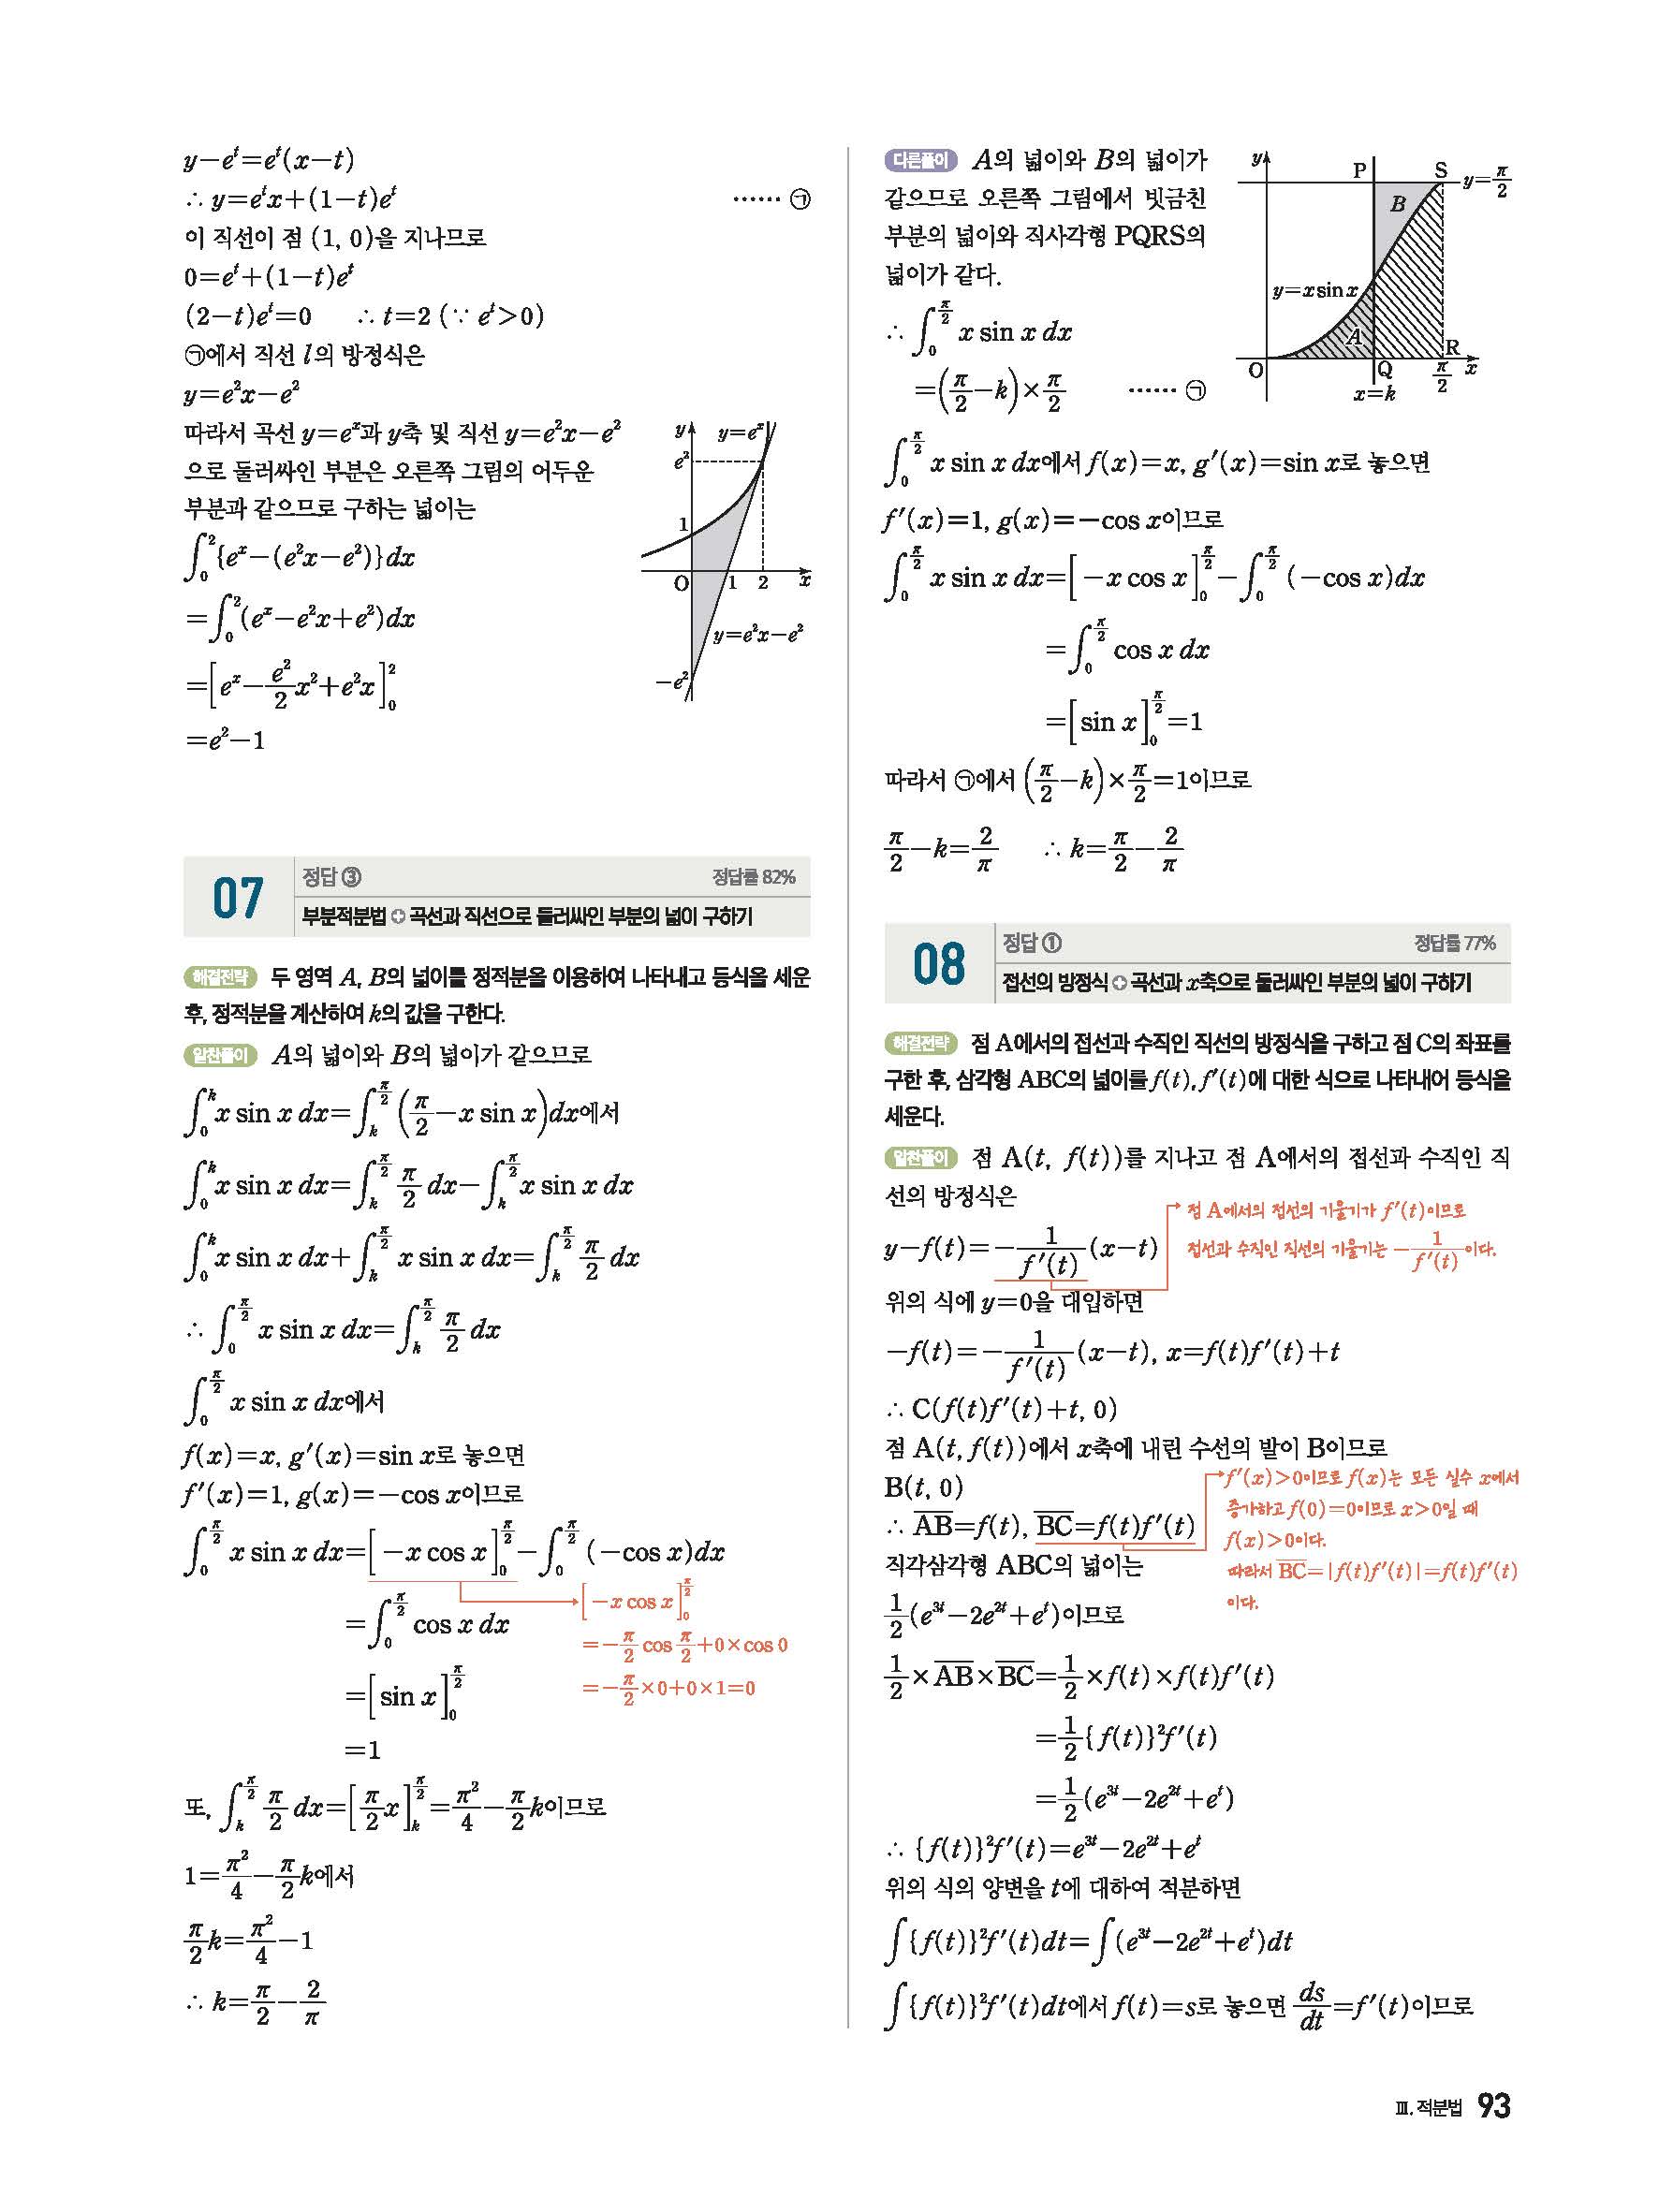 y-e^t=e^t(x-t)
∴ y=e^t x+(1-t)e^t …… ㉠
이 직선이 점 (1, 0)을 지나므로
0=e^t+(1-t)e^t
(2-t)e^t=0 ∴ t=2 (∵ e^t>0)
㉠에서 직선 l의 방정식은
y=e^2x-e^2
따라서 곡선 y=e^x과 y축 및 직선 y=e^2x-e^2
으로 둘러싸인 부분은 오른쪽 그림의 어두운
부분과 같으므로 구하는 넓이는
∫_0^2 {e^x-(e^2x-e^2)}dx
=∫_0^2 (e^x-e^2x+e^2)dx
=[e^x-\frac{e^2}{2}x^2+e^2x]_0^2
=e^2-1
y
y=e^x
e^2
1
O
1
2
x
y=e^2x-e^2
-e^2
07
정답 ③ 정답률 82%
부분적분법 ✪ 곡선과 직선으로 둘러싸인 부분의 넓이 구하기
해결전략 두 영역 A, B의 넓이를 정적분을 이용하여 나타내고 등식을 세운
후, 정적분을 계산하여 k의 값을 구한다.
알찬풀이 A의 넓이와 B의 넓이가 같으므로
∫_0^k x sin x dx=∫_k^{\frac{π}{2}} (\frac{π}{2}-x sin x)dx에서
∫_0^k x sin x dx=∫_k^{\frac{π}{2}} \frac{π}{2} dx-∫_k^{\frac{π}{2}} x sin x dx
∫_0^k x sin x dx+∫_k^{\frac{π}{2}} x sin x dx=∫_k^{\frac{π}{2}} \frac{π}{2} dx
∴ ∫_0^{\frac{π}{2}} x sin x dx=∫_k^{\frac{π}{2}} \frac{π}{2} dx
∫_0^{\frac{π}{2}} x sin x dx에서
f(x)=x, g′(x)=sin x로 놓으면
f′(x)=1, g(x)=-cos x이므로
∫_0^{\frac{π}{2}} x sin x dx=[-x cos x]_0^{\frac{π}{2}}-∫_0^{\frac{π}{2}} (-cos x)dx
=∫_0^{\frac{π}{2}} cos x dx
=[sin x]_0^{\frac{π}{2}}
=1
[-x cos x]_0^{\frac{π}{2}}
=-\frac{π}{2} cos \frac{π}{2}+0×cos 0
=-\frac{π}{2}×0+0×1=0
또, ∫_k^{\frac{π}{2}} \frac{π}{2} dx=[\frac{π}{2}x]_k^{\frac{π}{2}}=\frac{π^2}{4}-\frac{π}{2}k이므로
1=\frac{π^2}{4}-\frac{π}{2}k에서
\frac{π}{2}k=\frac{π^2}{4}-1
∴ k=\frac{π}{2}-\frac{2}{π}
다른풀이 A의 넓이와 B의 넓이가
같으므로 오른쪽 그림에서 빗금친
부분의 넓이와 직사각형 PQRS의
넓이가 같다.
∴ ∫_0^{\frac{π}{2}} x sin x dx
=(\frac{π}{2}-k)×\frac{π}{2} …… ㉠
y
P
S
y=\frac{π}{2}
B
y=x sin x
A
R
O
Q
\frac{π}{2}
x
x=k
∫_0^{\frac{π}{2}} x sin x dx에서 f(x)=x, g′(x)=sin x로 놓으면
f′(x)=1, g(x)=-cos x이므로
∫_0^{\frac{π}{2}} x sin x dx=[-x cos x]_0^{\frac{π}{2}}-∫_0^{\frac{π}{2}} (-cos x)dx
=∫_0^{\frac{π}{2}} cos x dx
=[sin x]_0^{\frac{π}{2}}=1
따라서 ㉠에서 (\frac{π}{2}-k)×\frac{π}{2}=1이므로
\frac{π}{2}-k=\frac{2}{π} ∴ k=\frac{π}{2}-\frac{2}{π}
08
정답 ① 정답률 77%
접선의 방정식 ✪ 곡선과 x축으로 둘러싸인 부분의 넓이 구하기
해결전략 점 A에서의 접선과 수직인 직선의 방정식을 구하고 점 C의 좌표를
구한 후, 삼각형 ABC의 넓이를 f(t), f′(t)에 대한 식으로 나타내어 등식을
세운다.
알찬풀이 점 A(t, f(t))를 지나고 점 A에서의 접선과 수직인 직
선의 방정식은
y-f(t)=-\frac{1}{f′(t)}(x-t)
점 A에서의 접선의 기울기가 f′(t)이므로
접선과 수직인 직선의 기울기는 -\frac{1}{f′(t)}이다.
위의 식에 y=0을 대입하면
-f(t)=-\frac{1}{f′(t)}(x-t), x=f(t)f′(t)+t
∴ C(f(t)f′(t)+t, 0)
점 A(t, f(t))에서 x축에 내린 수선의 발이 B이므로
B(t, 0)
∴ \overline{AB}=f(t), \overline{BC}=f(t)f′(t)
f′(x)>0이므로 f(x)는 모든 실수 x에서
증가하고 f(0)=0이므로 x>0일 때
f(x)>0이다.
따라서 \overline{BC}=|f(t)f′(t)|=f(t)f′(t)
이다.
직각삼각형 ABC의 넓이는
\frac{1}{2}(e^{3t}-2e^{2t}+e^t)이므로
\frac{1}{2}×\overline{AB}×\overline{BC}=\frac{1}{2}×f(t)×f(t)f′(t)
=\frac{1}{2}{f(t)}^2f′(t)
=\frac{1}{2}(e^{3t}-2e^{2t}+e^t)
∴ {f(t)}^2f′(t)=e^{3t}-2e^{2t}+e^t
위의 식의 양변을 t에 대하여 적분하면
∫{f(t)}^2f′(t)dt=∫(e^{3t}-2e^{2t}+e^t)dt
∫{f(t)}^2f′(t)dt에서 f(t)=s로 놓으면 \frac{ds}{dt}=f′(t)이므로
Ⅲ. 적분법 93